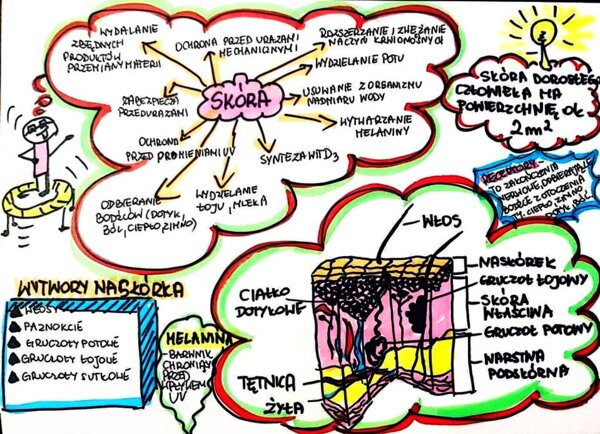 WYDALANIE
ZBĘDNYCH
PRODUKTÓW
PRZEMIANY MATERII
OCHRONA PRZED URAZAMI
MECHANICZNYMI
ROZSZERZANIE I ZWĘŻANIE
NACZYŃ KRWIONOŚNYCH
WYDZIELANIE POTU
USUWANIE Z ORGANIZMU
NADMIARU WODY
WYTWARZANIE
MELANINY
SYNTEZA WIT D3
WYDZIELANIE
ŁOJU, MLEKA
ODBIERANIE
BODŹCÓW (DOTYK,
BÓL, CIEPŁO, ZIMNO)
OCHRONA
PRZED PROMIENIAMI UV
ZABEZPIECZA
PRZED URAZAMI
SKÓRA
SKÓRA DOROSŁEGO
CZŁOWIEKA MA
POWIERZCHNIĘ OK.
2m²
RECEPTORY -
TO ZAKOŃCZENIA
NERWOWE, ODBIERAJĄCE
BODŹCE Z OTOCZENIA
CIEPŁO, ZIMNO,
DOTYK, BÓL
WYTWORY NASKÓRKA
WŁOSY
PAZNOKCIE
GRUCZOŁY POTOWE
GRUCZOŁY ŁOJOWE
GRUCZOŁY SUTKOWE
MELANINA
- BARWNIK
CHRONIĄCY
PRZED
WPŁYWEM
UV
WŁOS
NASKÓREK
GRUCZOŁ ŁOJOWY
SKÓRA
WŁAŚCIWA
GRUCZOŁ POTOWY
WARSTWA
PODSKÓRNA
CIAŁKO
DOTYKOWE
TĘTNICA
ŻYŁA